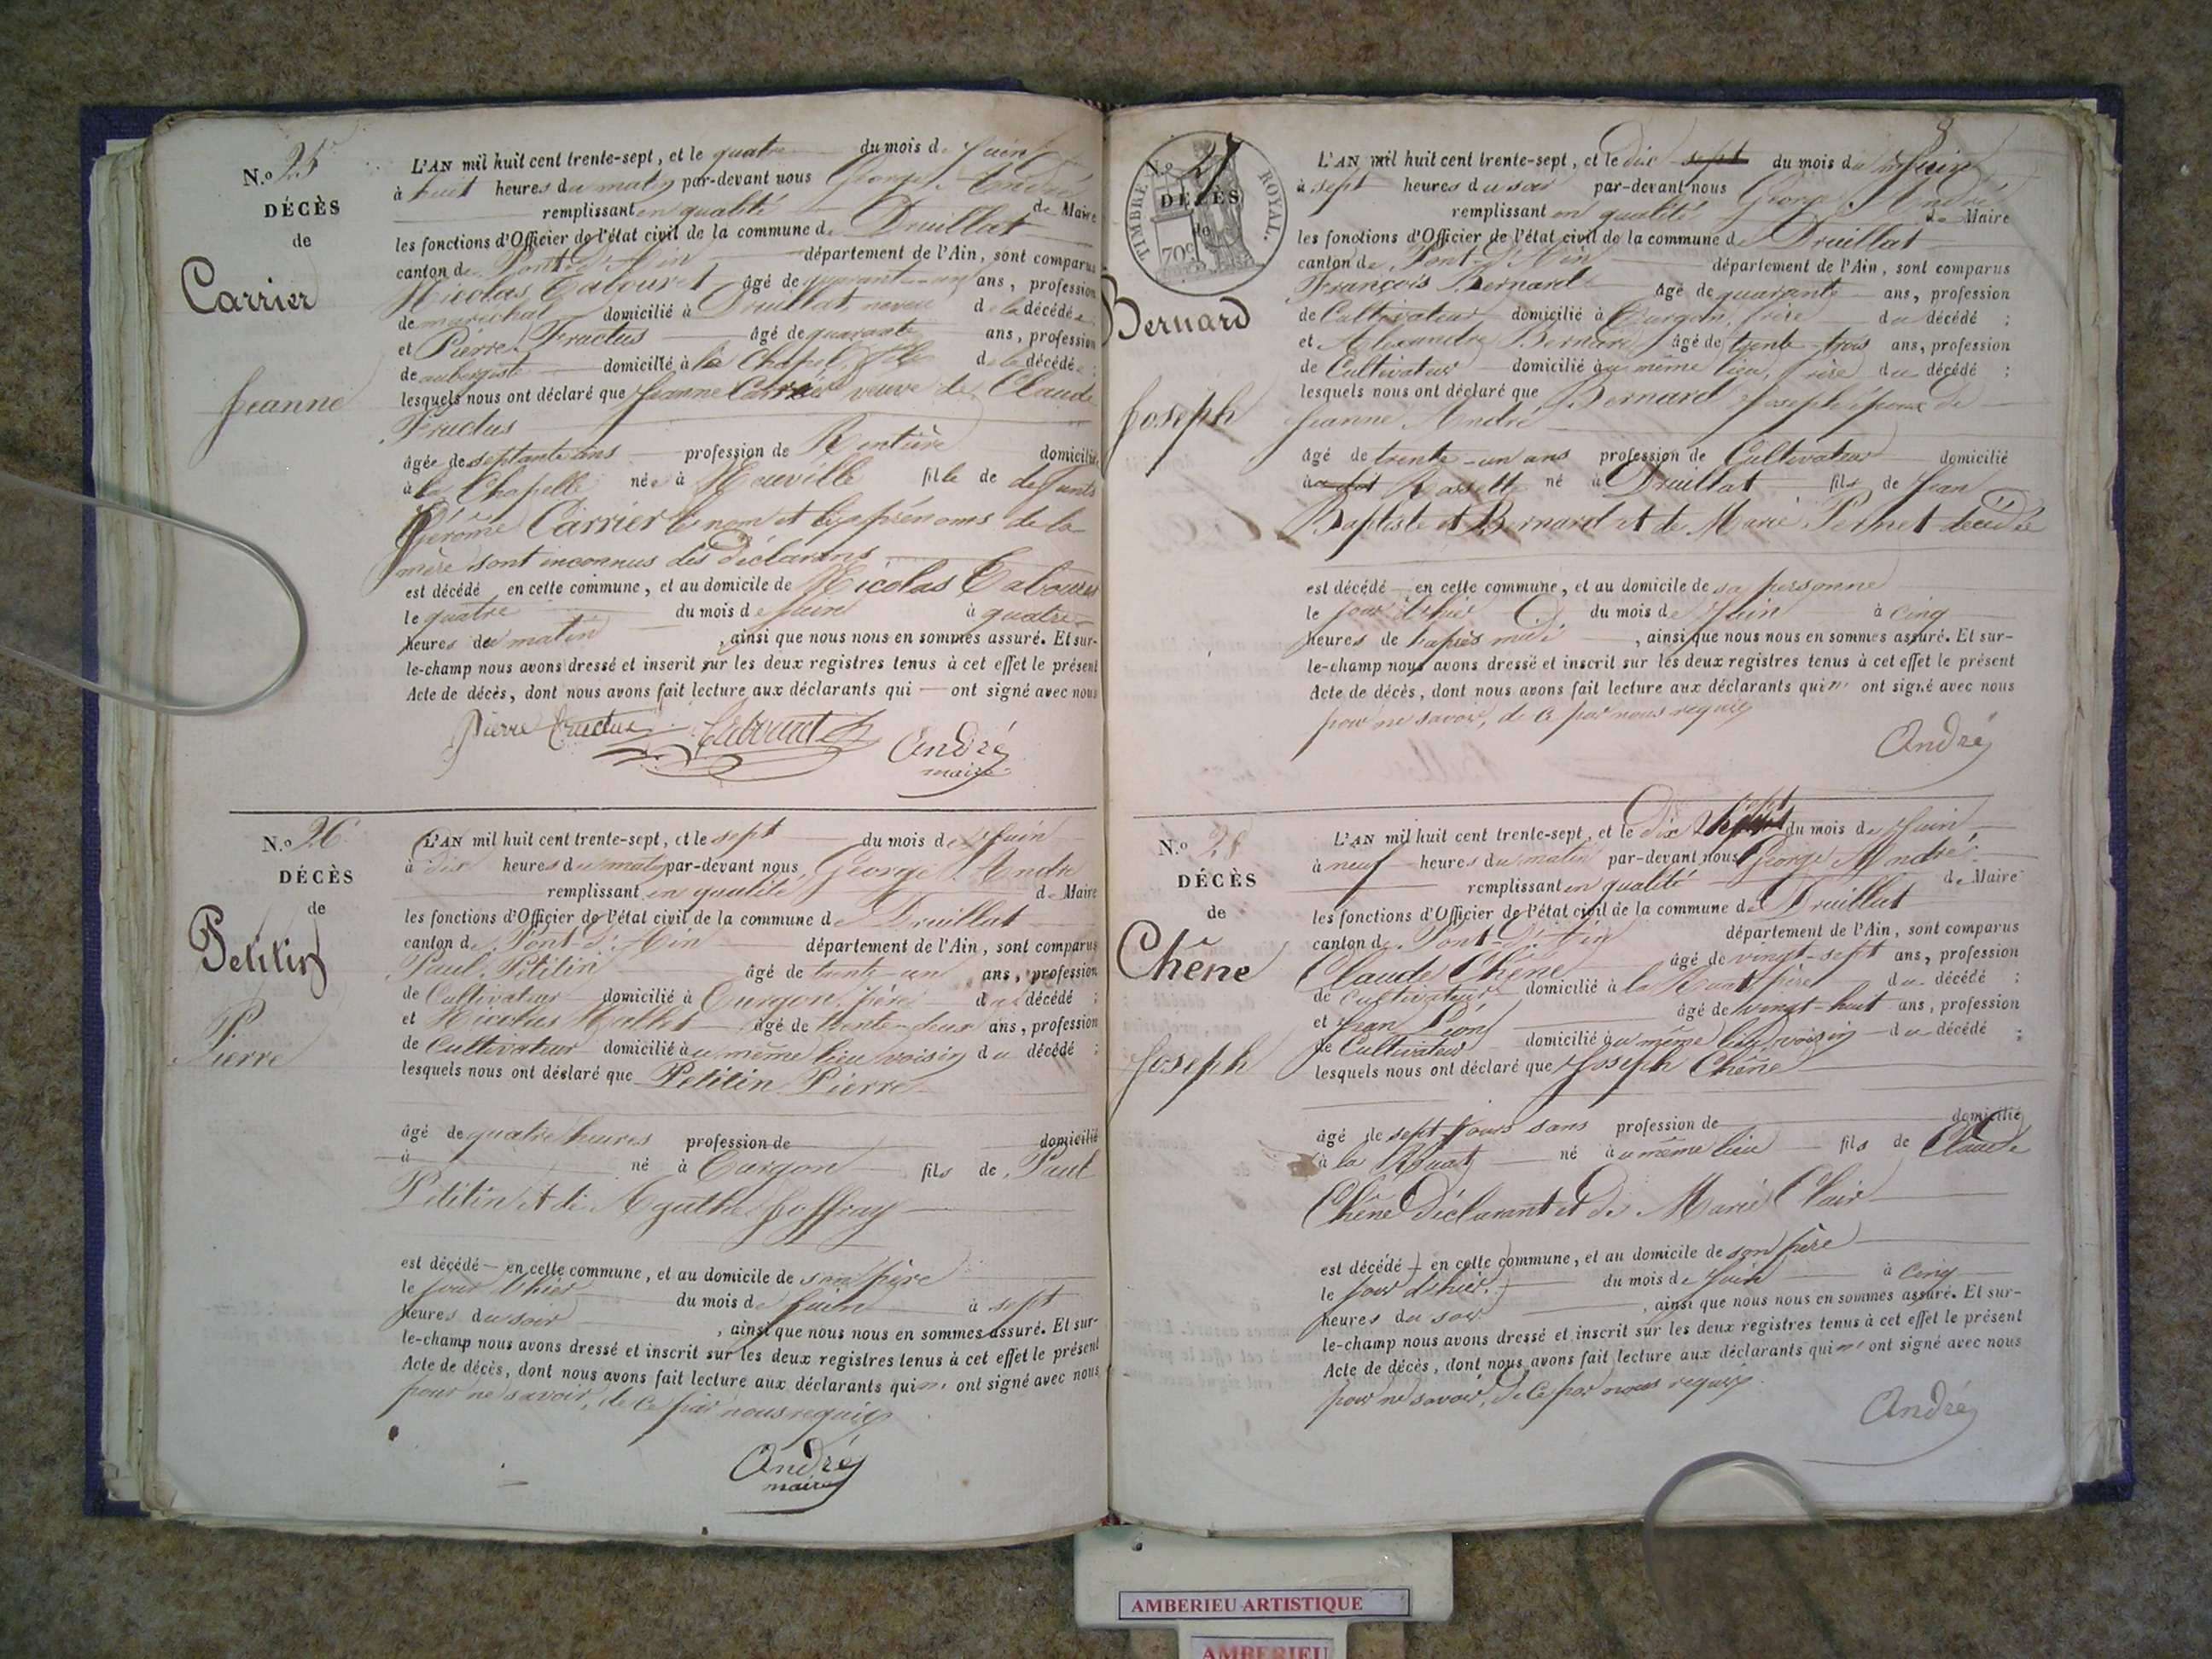 N.o 25
DÉCÈS
de
Carrier
Jeanne
L'AN mil huit cent trente-sept, et le quatre du mois de Juin
à huit heures du matin par-devant nous George André
remplissant en qualité de Maire
les fonctions d'Officier de l'état civil de la commune de Druillat
canton de Pont-d'Ain département de l'Ain, sont comparus
Nicolas Tabouret âgé de quarante-un ans, profession
de maréchal domicilié à Druillat, neveu de la décédée
et Pierre Fructus âgé de quarante ans, profession
de aubergiste domicilié à la Chapelle, fils de la décédée ;
lesquels nous ont déclaré que Jeanne Carrier veuve de Claude
Fructus
âgée de septante ans profession de Rentière domicilié
à la Chapelle née à Neuville fille de defunts
Jérôme Carrier le nom et les prénoms de la
mère sont inconnus des déclarans
est décédé en cette commune, et au domicile de Nicolas Tabouret
le quatre du mois de Juin à quatre
heures du matin , ainsi que nous nous en sommes assuré. Et sur-
le-champ nous avons dressé et inscrit sur les deux registres tenus à cet effet le présent
Acte de décès, dont nous avons fait lecture aux déclarants qui ont signé avec nous
Pierre Fructus Tabouret André
maire
N.o 26
DÉCÈS
de
Petitin
Pierre
L'AN mil huit cent trente-sept, et le sept du mois de Juin
à dix heures du matin par-devant nous George André
remplissant en qualité de Maire
les fonctions d'Officier de l'état civil de la commune de Druillat
canton de Pont-d'Ain département de l'Ain, sont comparus
Paul Petitin âgé de trente-un ans, profession
de Cultivateur domicilié à Turgon, père du décédé ;
et Nicolas Mallet âgé de trente-deux ans, profession
de Cultivateur domicilié au même lieu voisin du décédé ;
lesquels nous ont déclaré que Petitin Pierre
âgé de quatre heures profession de domicilié
à né à Turgon fils de Paul
Petitin et de Agathe Joffray
est décédé en cette commune, et au domicile de son père
le jour d'hier du mois de Juin à sept
heures du soir , ainsi que nous nous en sommes assuré. Et sur-
le-champ nous avons dressé et inscrit sur les deux registres tenus à cet effet le présent
Acte de décès, dont nous avons fait lecture aux déclarants qui n' ont signé avec nous
pour ne savoir, de ce par nous requis
André
maire
TIMBRE ROYAL.
70c
N.o 27
DÉCÈS
de
Bernard
Joseph
L'AN mil huit cent trente-sept, et le dix sept du mois de Juin
à sept heures du soir par-devant nous George André
remplissant en qualité de Maire
les fonctions d'Officier de l'état civil de la commune de Druillat
canton de Pont-d'Ain département de l'Ain, sont comparus
François Bernard âgé de quarante ans, profession
de Cultivateur domicilié à Turgon, frère du décédé ;
et Alexandre Bernard âgé de trente-trois ans, profession
de Cultivateur domicilié au même lieu, frère du décédé ;
lesquels nous ont déclaré que Bernard Joseph époux de
Jeanne André
âgé de trente-un ans profession de Cultivateur domicilié
à né à Druillat fils de Jean
Baptiste et Bernard et de Marie Pernet décédée
est décédé en cette commune, et au domicile de sa personne
le jour d'hier du mois de Juin à cinq
heures de l'après midi , ainsi que nous nous en sommes assuré. Et sur-
le-champ nous avons dressé et inscrit sur les deux registres tenus à cet effet le présent
Acte de décès, dont nous avons fait lecture aux déclarants qui n' ont signé avec nous
pour ne savoir, de ce par nous requis
André
N.o 28
DÉCÈS
de
Chêne
Joseph
L'AN mil huit cent trente-sept, et le dix du mois de Juin
à neuf heures du matin par-devant nous George André
remplissant en qualité de Maire
les fonctions d'Officier de l'état civil de la commune de Druillat
canton de Pont-d'Ain département de l'Ain, sont comparus
Claude Chêne âgé de vingt-sept ans, profession
de Cultivateur domicilié à la Ruat père du décédé ;
et Jean Pion âgé de vingt-huit ans, profession
de Cultivateur domicilié au même lieu voisin du décédé ;
lesquels nous ont déclaré que Joseph Chêne
âgé de sept jours sans profession de domicilié
à la Ruat né au même lieu fils de Claude
Chêne Déclarant et de Marie Clair
est décédé en cette commune, et au domicile de son père
le jour d'hier du mois de Juin à cinq
heures du soir , ainsi que nous nous en sommes assuré. Et sur-
le-champ nous avons dressé et inscrit sur les deux registres tenus à cet effet le présent
Acte de décès, dont nous avons fait lecture aux déclarants qui n' ont signé avec nous
pour ne savoir, de ce par nous requis
André
AMBERIEU ARTISTIQUE
AMBERIEU